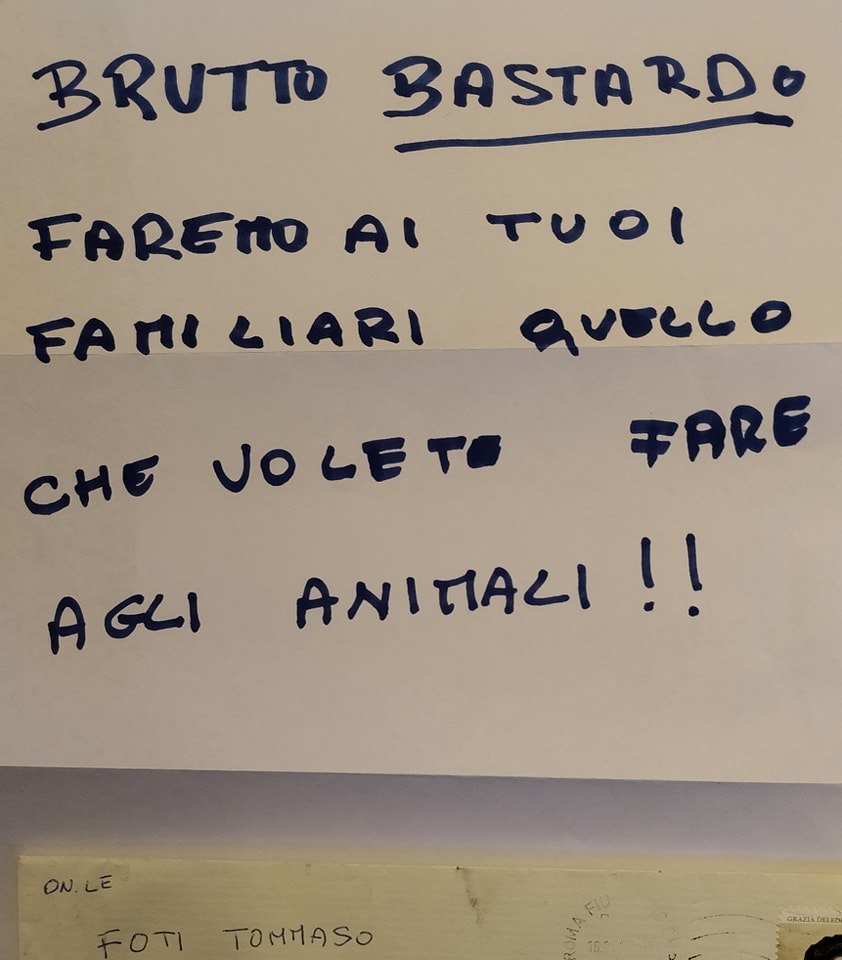 BRUTTO BASTARDO
FAREMO AI TUOI
FAMILIARI QUELLO
CHE VOLETE FARE
AGLI ANIMALI!!
ON.LE
FOTI TOMMASO
ROMA
GRAZIA